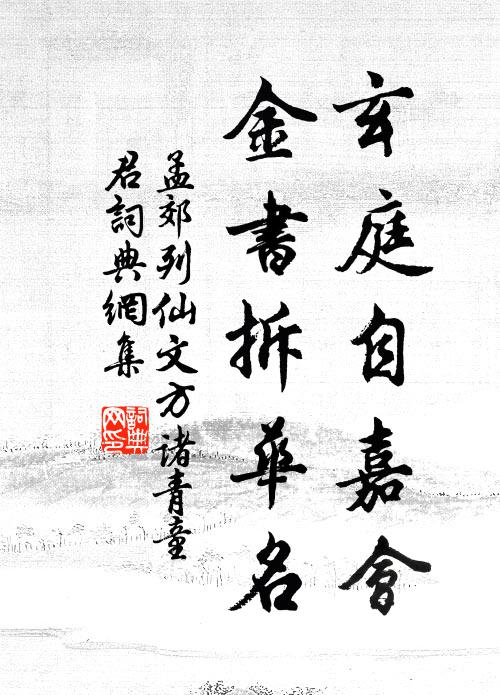 玄庭自嘉會
金書拆華名
孟郊列仙文方諸青童
君詞典網集
詞典網印